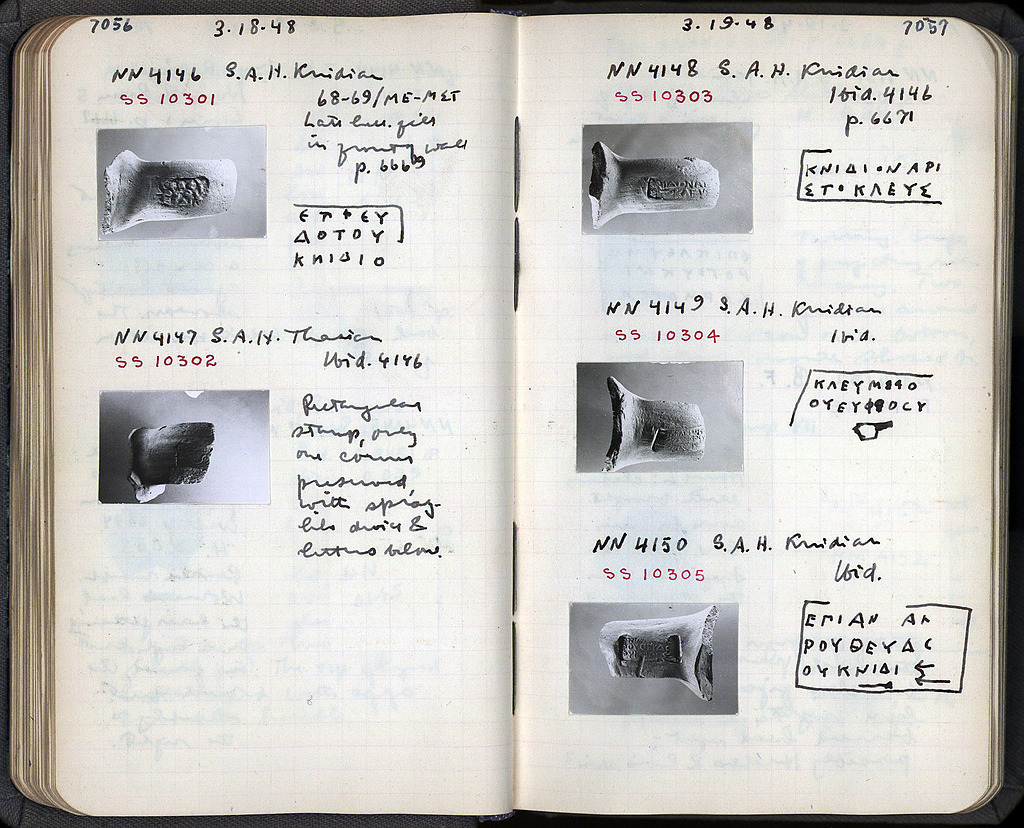 7056
3·18·48
NN 4146 S.A.H. Knidian
SS 10301
68-69/ΜΕ-ΜΣΤ
Late hell. fill
in front wall
p. 6669
ΕΠΙΕΥ
ΔΟΤΟΥ
ΚΝΙΔΙΟ
NN 4147 S.A.H. Thasian
SS 10302
Ibid. 4146
Rectangular
stamp, only
one corner
preserved,
with
device &
letters below.
7057
3·19·48
NN 4148 S.A.H. Knidian
SS 10303
Ibid. 4146
p. 6671
ΚΝΙΔΙΟΝΑΡΙ
ΣΤΟΚΛΕΥΣ
NN 4149 S.A.H. Knidian
SS 10304
Ibid.
NN 4150 S.A.H. Knidian
SS 10305
Ibid.
ΕΠΙΑΝ ΑΝ
ΡΟΥΘΕΥΔC
ΟΥΚΝΙΔΙ